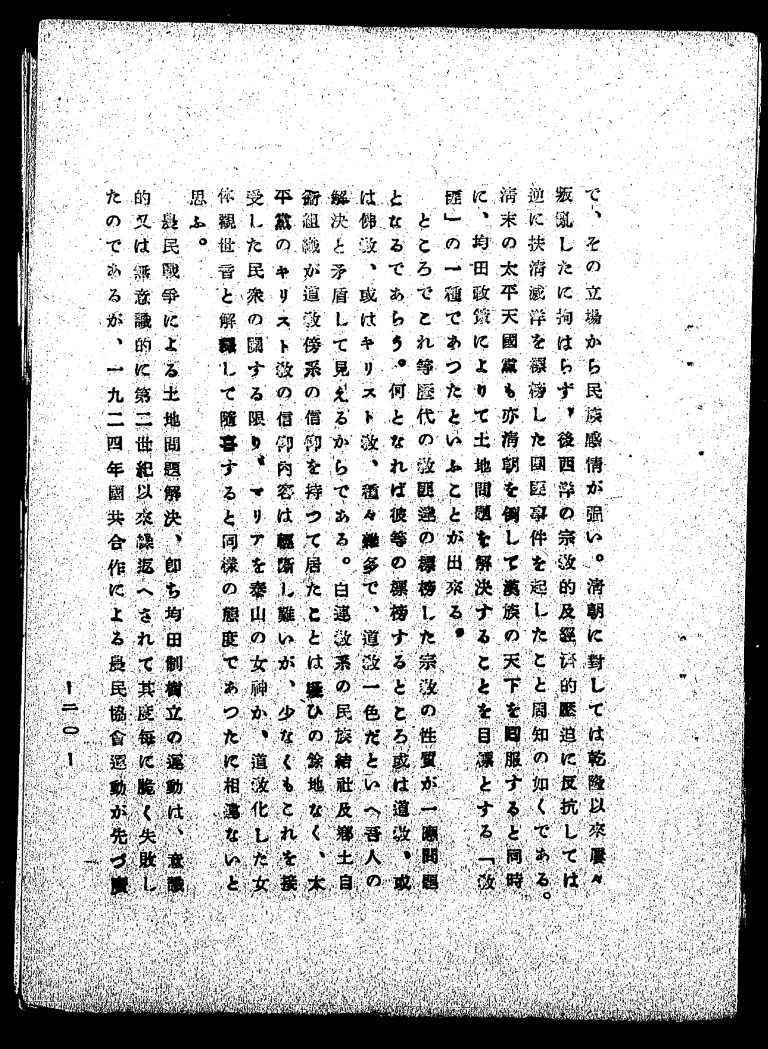 で、その立場から民族感情が强い。清朝に對しては乾隆以來屢々
叛亂したに拘はらず、後西洋の宗敎的及經濟的壓迫に反抗しては
逆に扶清滅洋を標榜した團匪事件を起したこと周知の如くである。
清末の太平天國黨も亦清朝を倒して漢族の天下を囘服すると同時
に、均田政策によりて土地問題を解決することを目標とする「敎
匪」の一種であつたといふことが出來る。
ところでこれ等歷代の敎匪達の標榜した宗敎の性質が一應問題
となるであらう。何となれば彼等の標榜するところ或は道敎、或
は佛敎、或はキリスト敎、種々雜多で、道敎一色だといへ吾人の
解決と矛盾して見えるからである。白蓮敎系の民族結社及鄕土自
衞組織が道敎傍系の信仰を持つて居たことは疑ひの餘地なく、太
平黨のキリスト敎の信仰內容は輕斷し難いが、少なくもこれを接
受した民衆の關する限り、マリアを泰山の女神か、道敎化した女
体觀世音と解釋して隨喜すると同樣の態度であつたに相違ないと
思ふ。
農民戰爭による土地問題解決、卽ち均田制樹立の運動は、意識
的又は無意識的に第二世紀以來繰返へされて其度每に脆く失敗し
たのであるが、一九二四年國共合作による農民協會運動が先づ廣
―二〇―